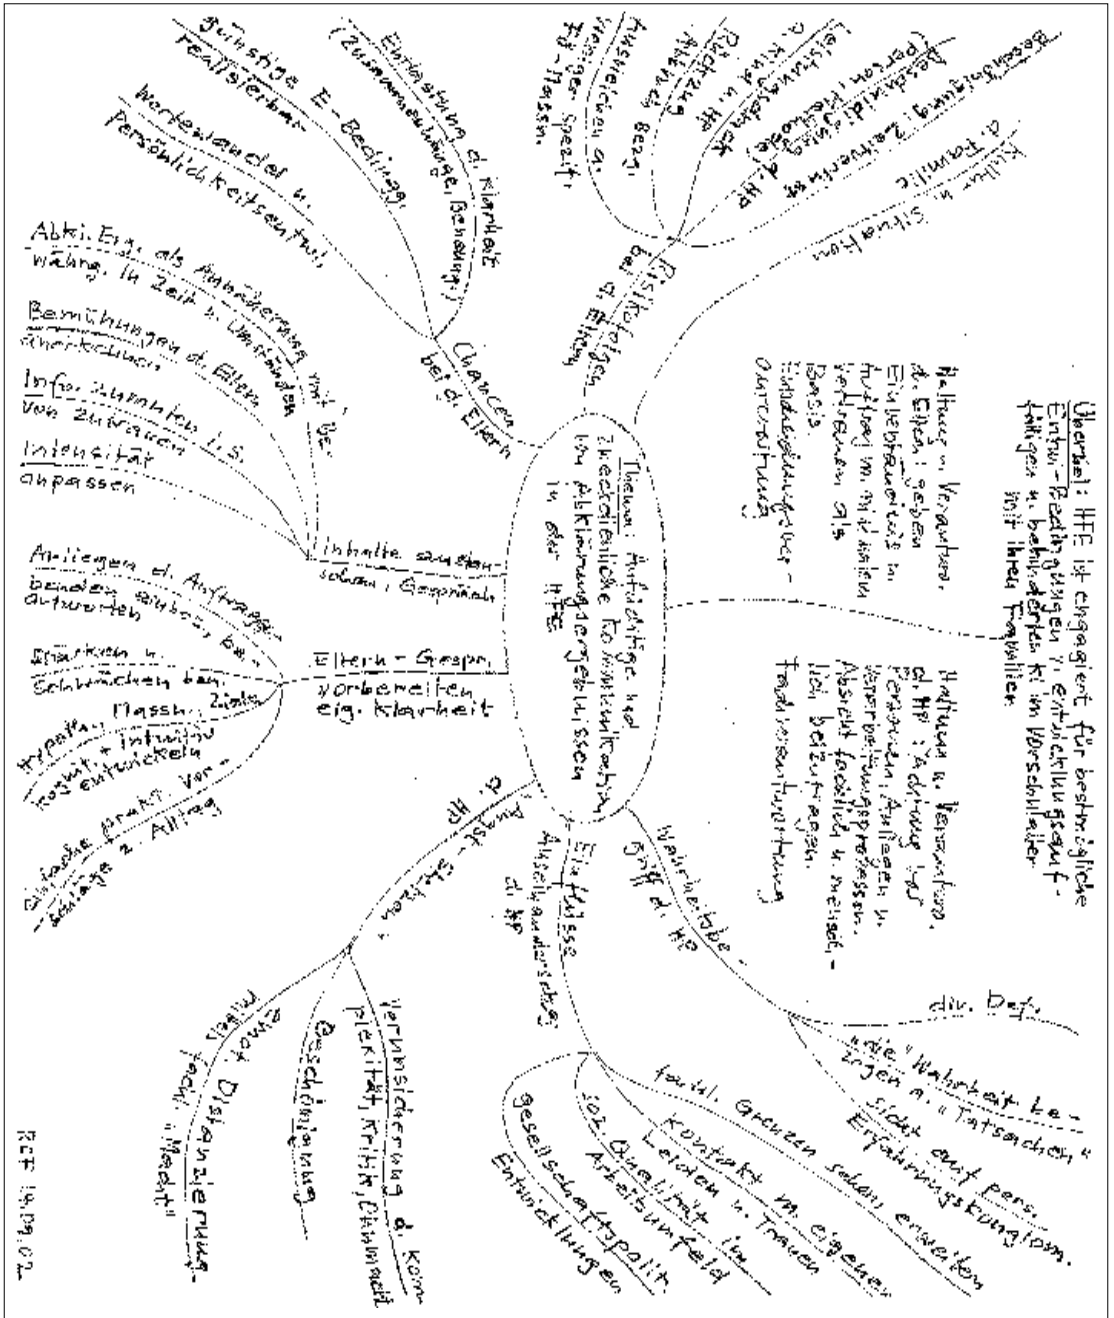 Überziel: HFE ist engagiert für bestmögliche
Entwi-Bedingungen v. entwicklungsauf-
fälligen u. behinderten Ki im Vorschulalter
mit ihren Familien
Haltung u. Verantw.
d. Eltern: geben
Einverständnis u.
Auftrag m. minimalem
Vertrauen als
Basis.
Haltung u. Verantw.
d. HP: Achtung vor
Personen, Anliegen u.
Verarbeitungsprozessen.
Absicht fachlich u. menschl-
lich beizutragen.
Fachverantwortung
Thema: Aufrichtige und
zweckdienliche Kommunikation
von Abklärungsergebnissen
in der HFE
Kultur u. Situation
d. Familie
Risikofolgen
bei d. Eltern
Beschönigung: Zeitverlust
Beschuldigung d. HP
(Person, Methode)
Leistungsdruck
a. Kind u. HP
Rückzug
Abbruch Bezg.
Ausweichen a.
weniger spezif.
Fö-Massn.
Chancen
bei d. Eltern
Entlastung d. Klarheit
(Zusammenhänge, Benenng.)
günstige E-Bedingg.
realisierbar
Wertewandel u.
Persönlichkeitsentwi.
Inhalte
schaen, Gespräch
Abkl. Erg. als Annäherung mit Be-
währg. in Zeit u. Umständen
Bemühungen d. Eltern
anerkennen
Info. zumuten i. S.
von zutrauen
Intensität
anpassen
Eltern-Gespr.
vorbereiten
eig. Klarheit
Anliegen d. Auftragge-
benden einbez., be-
antworten
Stärken u.
Schwächen ben.
Hypoth., Massn., Ziele
kognit. + intuitiv
entwickeln
einfache prakt. Vor-
schläge z. Alltag
Angst-Stufen:
d. HP
Verunsicherung d. Kom-
plexität, Kritik, Ohnmacht
Beschönigung
emot. Distanzierung
mittels fachl. "Macht"
Einflüsse
Auseinandersetzg
d. HP
fachl. Grenzen sehen, erweitern
Kontakt m. eigenen
Leiden u. Trauen
soz. Qualität im
Arbeitsumfeld
gesellschaftspolit.
Entwicklungen
Wahrheitsbe-
griff d. HP
div. Def.
"die" Wahrheit be-
zogen a. "Tatsachen"
Sicht auf pers.
Erfahrungskonglom.
REF 14.09.02